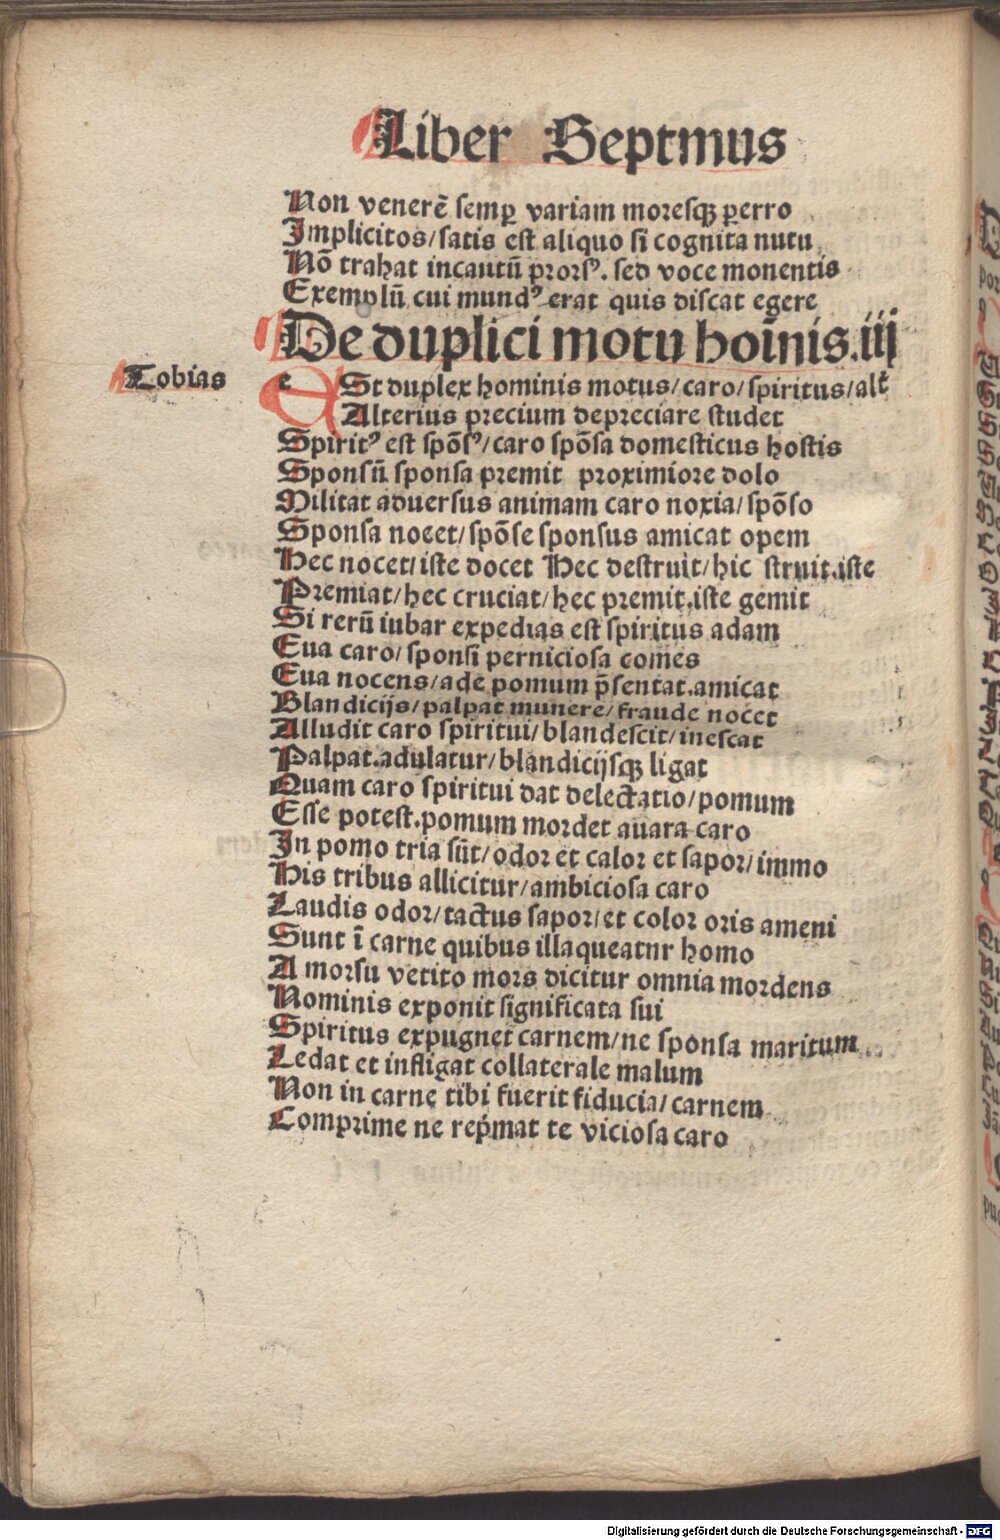 Liber Septmus
Non venerē semꝑ variam moresqꝫ ꝑerro
Implicitos/satis est aliquo si cognita nutu
Nō trahat incautū prorsꝰ. sed voce monentis
Exemplū cui mundꝰ erat quis discat egere
De duplici motu hoīnis.iij
Tobias
e
ESt duplex hominis motus/caro/spiritus/alt̄
Alterius precium depreciare studet
Spiritꝰ est spōsꝰ/caro spōsa domesticus hostis
Sponsū sponsa premit proximiore dolo
Militat aduersus animam caro noxia/spōso
Sponsa nocet/spōse sponsus amicat opem
Hec nocet/iste docet Hec destruit/hic struit.iste
Premiat/hec cruciat/hec premit.iste gemit
Si rerū iubar expedias est spiritus adam
Eua caro/sponsi perniciosa comes
Eua nocens/ade pomum p̄sentat.amicat
Blandicijs/palpat munere/fraude nocet
Alludit caro spiritui/blandescit/inescat
Palpat.adulatur/blandicijsqꝫ ligat
Quam caro spiritui dat delectatio/pomum
Esse potest.pomum mordet auara caro
In pomo tria sūt/odor et calor et sapor/immo
His tribus allicitur/ambiciosa caro
Laudis odor/tactus sapor/et color oris ameni
Sunt ī carne quibus illaqueatnr homo
A morsu vetito mors dicitur omnia mordens
Nominis exponit significata sui
Spiritus expugnet carnem/ne sponsa maritum
Ledat et infligat collaterale malum
Non in carne tibi fuerit fiducia/carnem
Comprime ne rep̄mat te viciosa caro
Digitalisierung gefördert durch die Deutsche Forschungsgemeinschaft - DFG